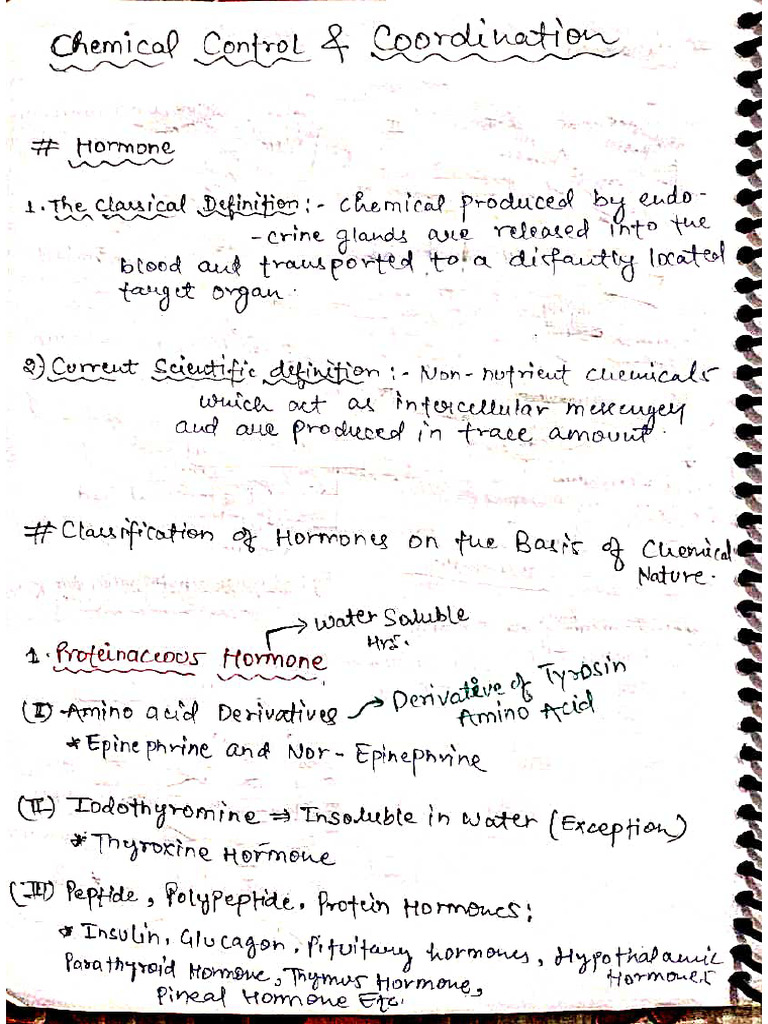 Chemical Control & Coordination
# Hormone
1. The Classical Definition :- Chemical produced by endo-
-crine glands are released into the
blood and transported to a distantly located
target organ.
2) Current Scientific definition :- Non-nutrient chemicals
which act as intercellular messengers
and are produced in trace amount.
# Classification of Hormones on the Basis of Chemical
Nature.
→ Water Soluble
Hrs.
1. Proteinaceous Hormone
(I) Amino acid Derivatives → Derivative of Tyrosin
Amino Acid
* Epinephrine and Nor-Epinephrine
(II) Iodothyromine ⇒ Insoluble in Water (Exception)
* Thyroxine Hormone
(III) Peptide, Polypeptide, Protein Hormones:
* Insulin, Glucagon, Pituitary hormones, Hypothalamic
Hormones
Parathyroid Hormone, Thymus Hormone,
Pineal Hormone Etc.